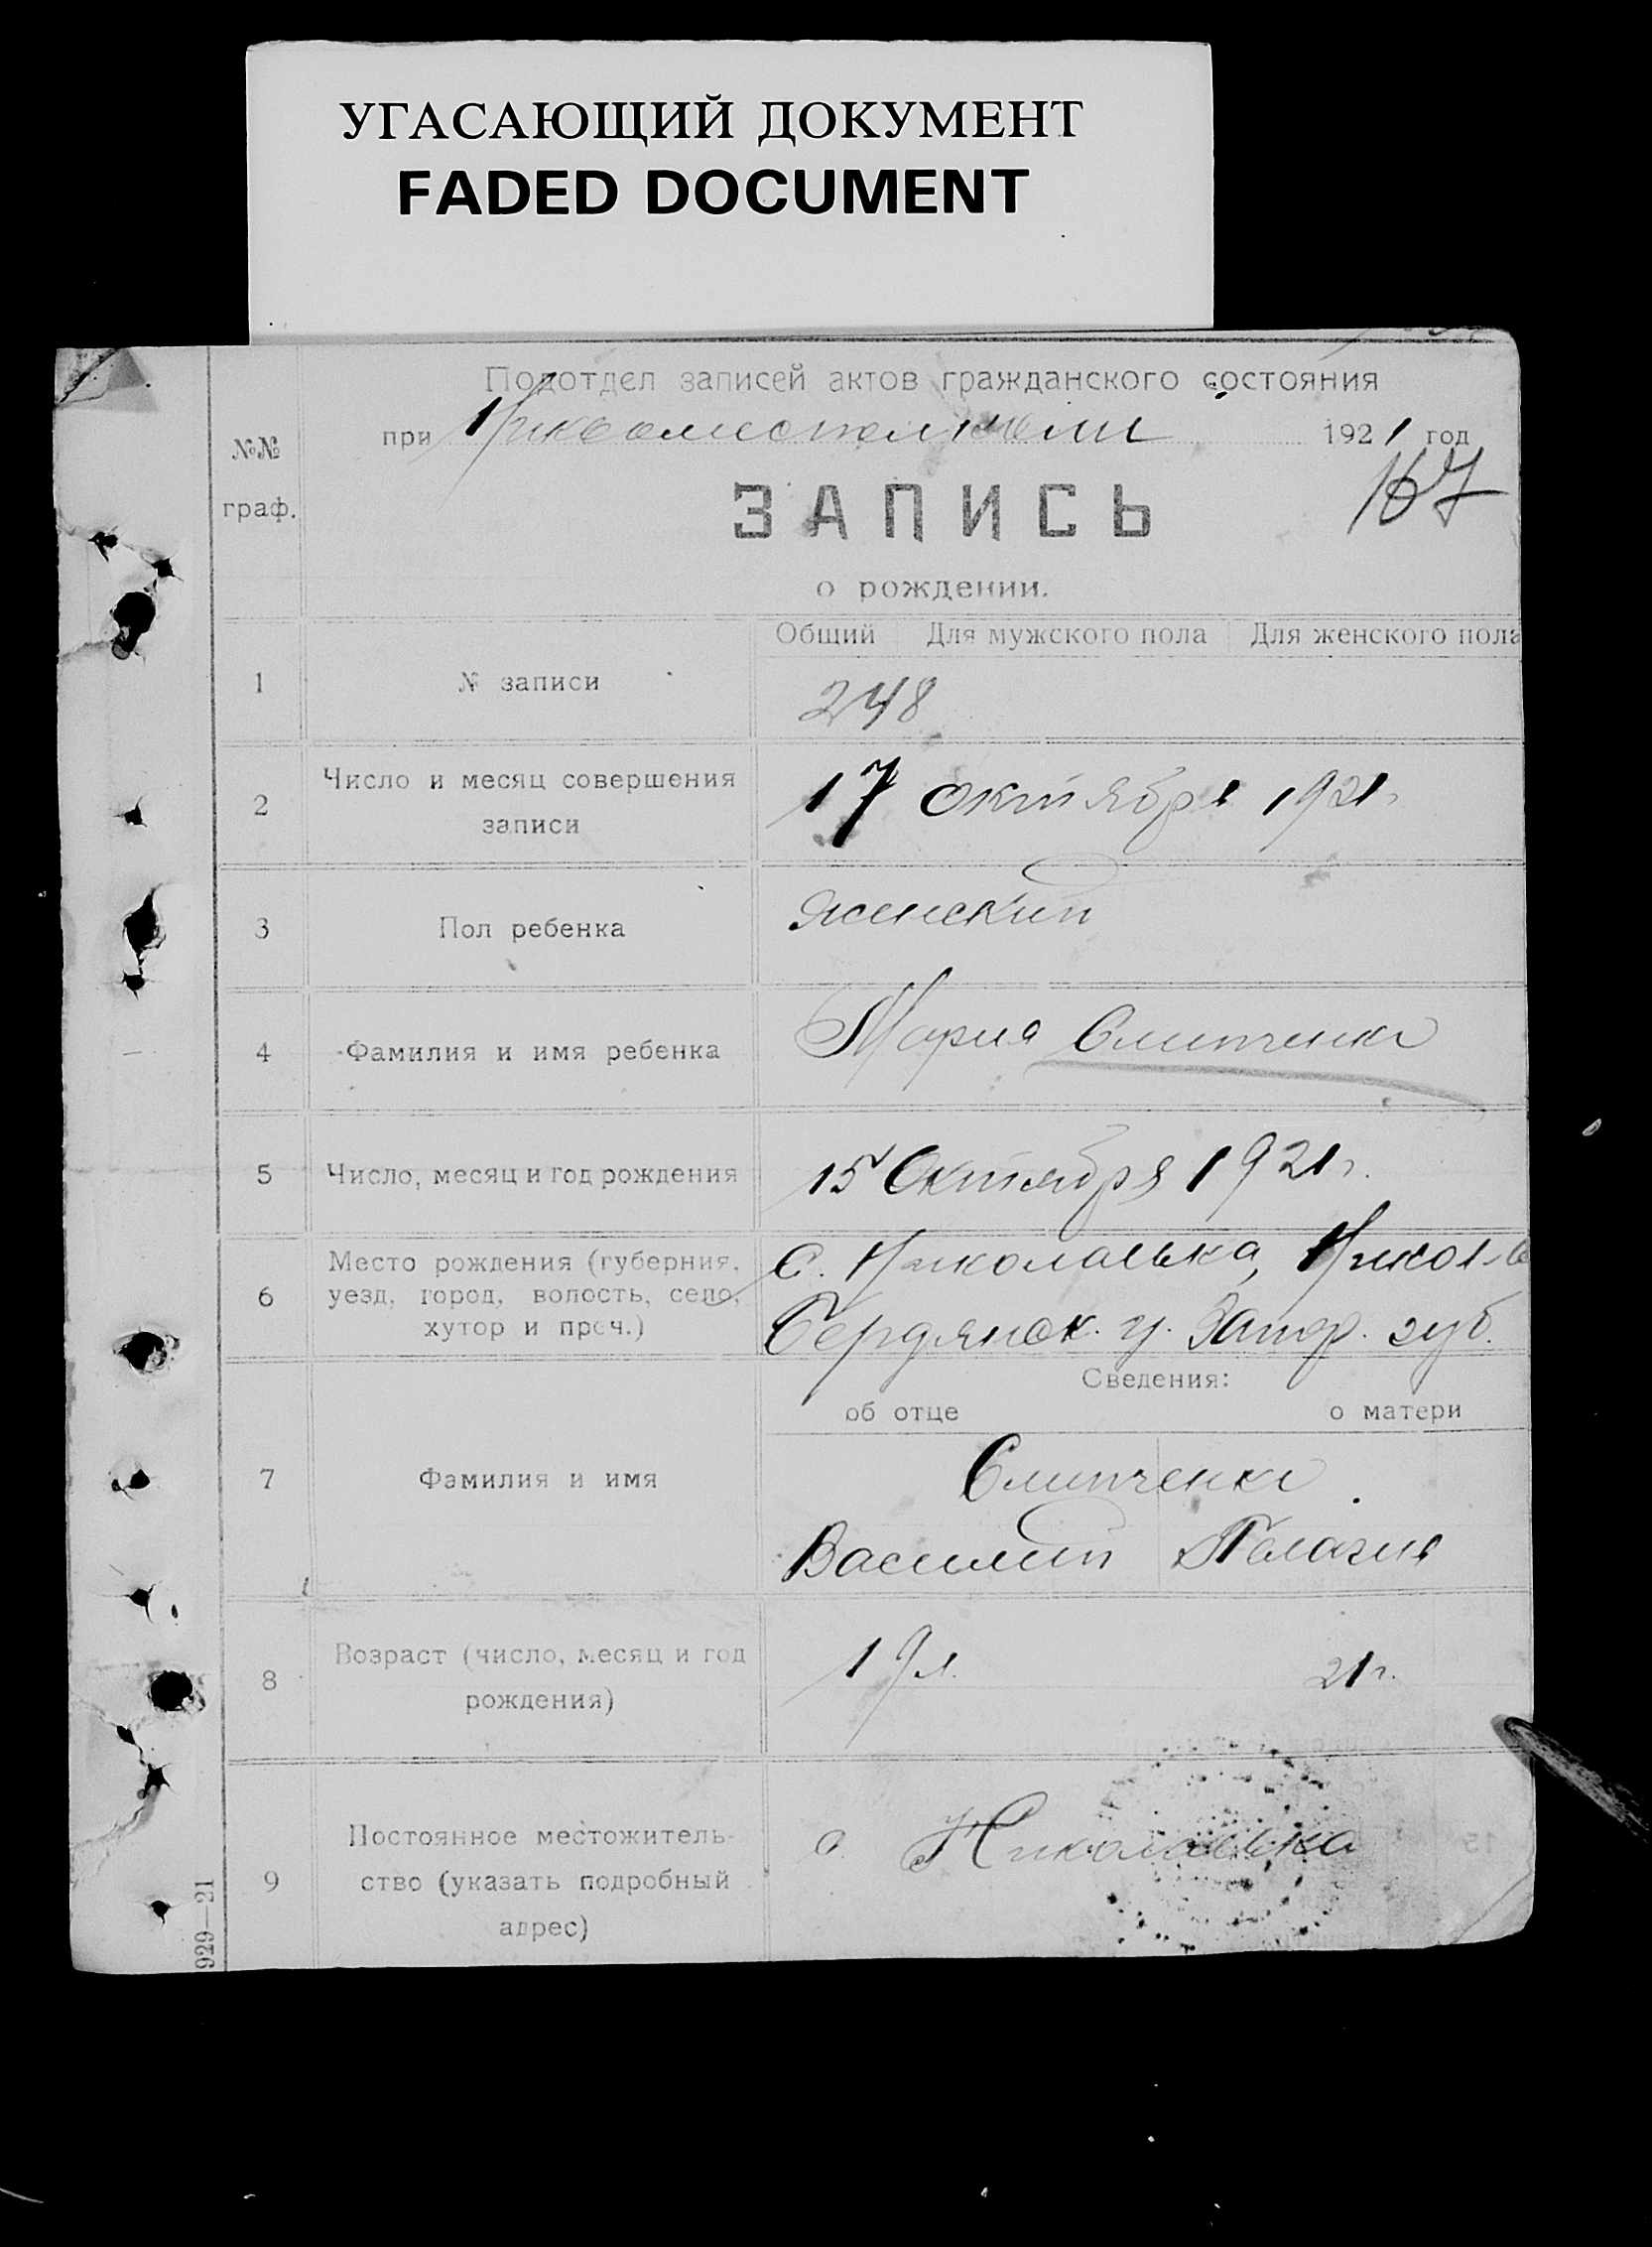 УГАСАЮЩИЙ ДОКУМЕНТ
FADED DOCUMENT
Подотдел записей актов гражданского состояния
при 1921 год
№№
граф.
167
ЗАПИСЬ
о рождении.
Общий Для мужского пола Для женского пола
1 № записи 248
2 Число и месяц совершения записи
17 октября 1921г
3 Пол ребенка Женский
4 Фамилия и имя ребенка Мария Слипченко
5 Число, месяц и год рождения 15 Октября 1921г.
6 Место рождения (губерния, уезд, город, волость, село, хутор и проч.)
С. Николаевка,
Бердянск. у. Запор. губ.
Сведения:
об отце о матери
7 Фамилия и имя
Слипченко
Василий Пелагия
8 Возраст (число, месяц и год рождения)
19л. 21г.
9 Постоянное местожительство (указать подробный адрес)
с. Николаевка
929—21